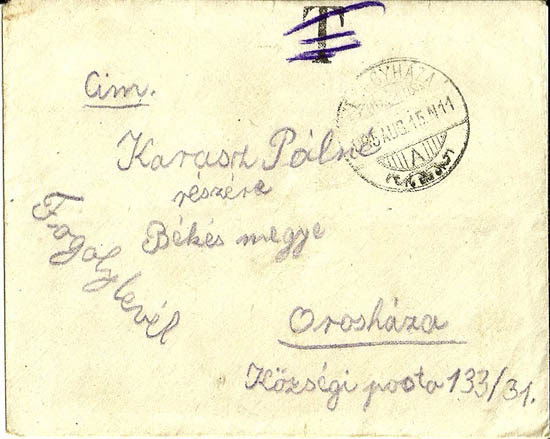 T
Cim.
Karasz Pálné
részére
Békés megye
Orosháza
Községi posta 133/31.
Fogolylevél
AUG. 15. N 11
A